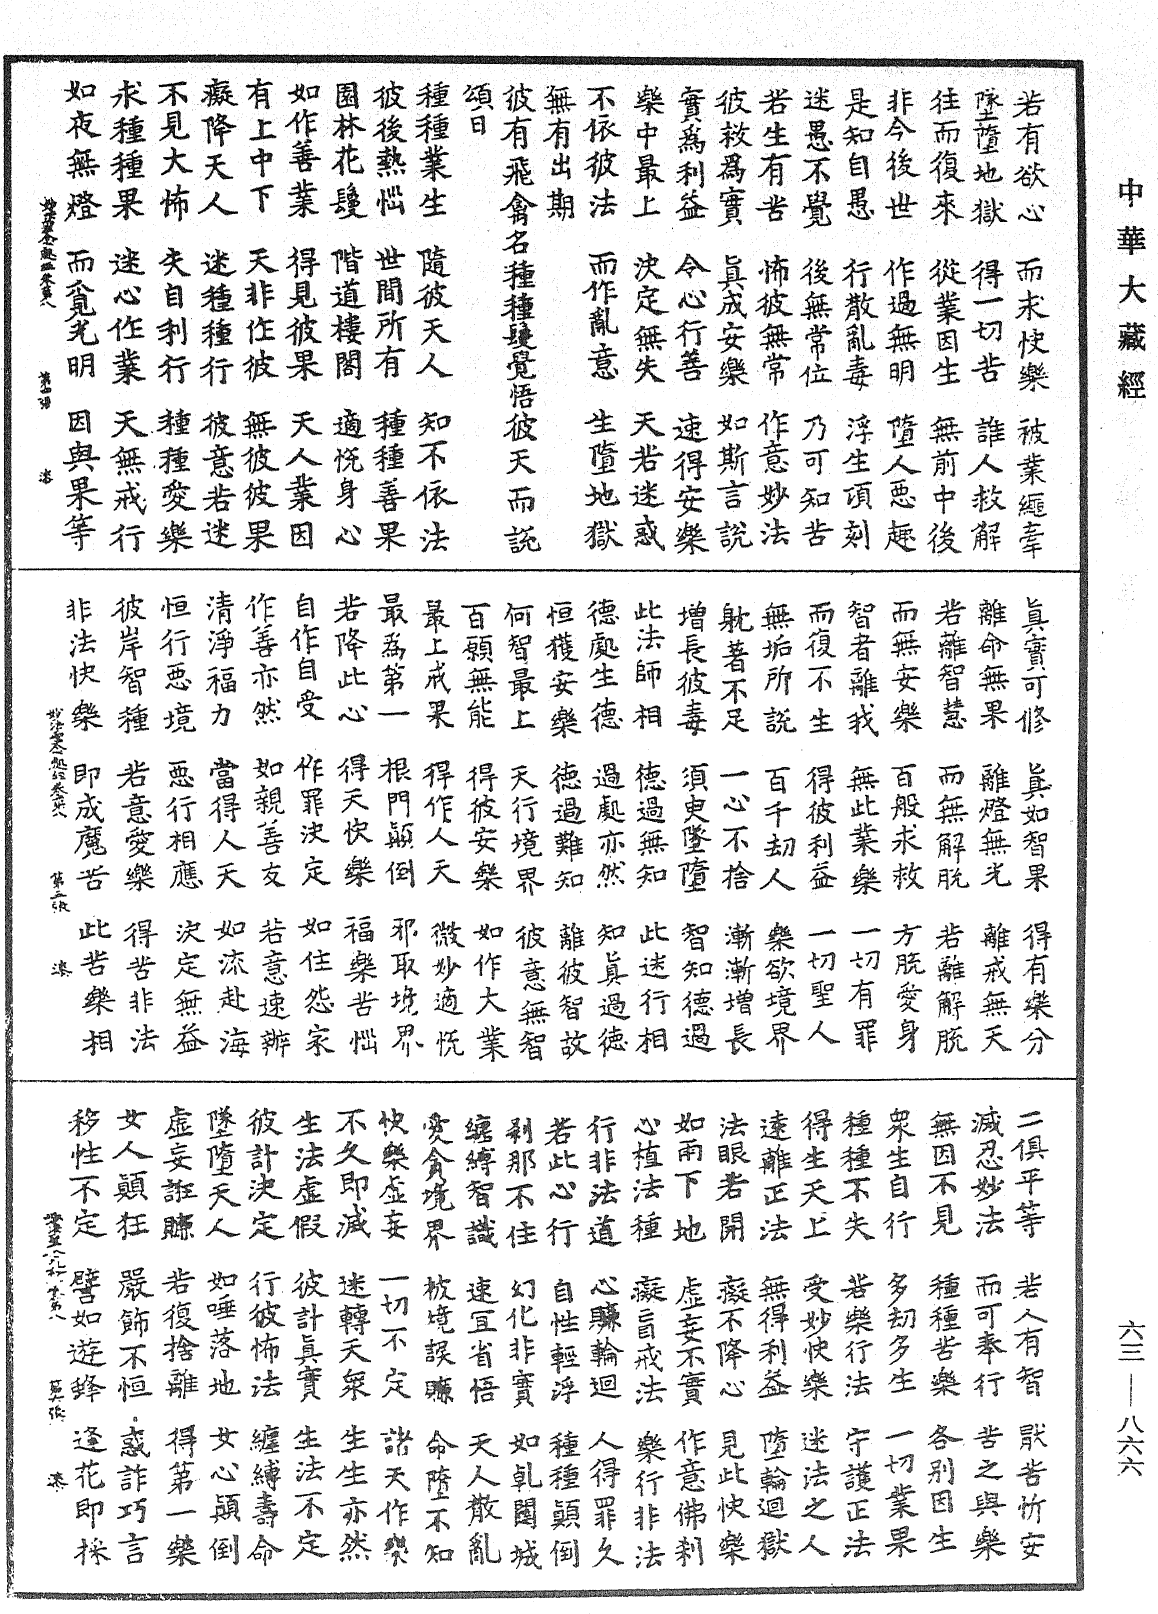 中華大藏經
若有欲心　而求快樂　被業繩牽
墜墮地獄　得一切苦　誰人救解
往而復來　從業因生　無前中後
非今後世　作過無明　墮人惡趣
是知自愚　行散亂毒　浮生頃刻
迷愚不覺　後無常位　乃可知苦
若生有苦　怖彼無常　作意妙法
彼救為實　真成安樂　如斯言說
實為利益　令心行善　速得安樂
樂中最上　決定無失　天若迷惑
不依彼法　而作亂意　生墮地獄
無有出期
彼有飛禽名種種鬘覺悟彼天而說
頌曰
種種業生　隨彼天人　知不依法
彼後熱惱　世間所有　種種善果
園林花鬘　階道樓閣　適悅身心
如作善業　得見彼果　天人業因
有上中下　天非作彼　無彼彼果
癡降天人　迷種種行　彼意若迷
不見大怖　失自利行　種種愛樂
求種種果　迷心作業　天無戒行
如夜無燈　而覓光明　因與果等
真實可修　真如智果　得有樂分
離命無果　離燈無光　離戒無天
若離智慧　而無解脫　若離解脫
而無安樂　百般求救　方脫愛身
智者離我　無此業樂　一切有罪
而復不生　得彼利益　一切聖人
無垢所說　百千劫人　樂欲境界
躭著不足　一心不捨　漸漸增長
增長彼毒　須臾墜墮　智知德過
此法師相　德過無知　此迷行相
德處生德　過處亦然　知真過德
恒獲安樂　德過難知　離彼智故
何智最上　天行境界　彼意無智
百願無能　得彼安樂　如作大業
最上戒果　得作人天　微妙適悅
最為第一　根門顛倒　邪取境界
若降此心　得天快樂　福樂苦惱
自作自受　作罪決定　如住怨家
作善亦然　如親善友　若意速辦
清淨福力　當得人天　如流赴海
恒行惡境　惡行相應　決定無益
彼岸智種　若意愛樂　得苦非法
非法快樂　即成魔苦　此苦樂相
二俱平等　若人有智　厭苦忻安
滅忍妙法　而可奉行　苦之與樂
無因不見　種種苦樂　各別因生
眾生自行　多劫多生　一切業果
種種不失　若樂行法　守護正法
得生天上　受妙快樂　迷法之人
遠離正法　無得利益　墮輪迴獄
法眼若開　癡不降心　見此快樂
如雨下地　虛妄不實　作意佛剎
心植法種　癡盲戒法　樂行非法
行非法道　心賺輪迴　人得罪久
若此心行　自性輕浮　種種顛倒
剎那不住　幻化非實　如乹闥城
纏縛智識　速宜省悟　天人散亂
愛貪境界　被境誤賺　命墮不知
快樂虛妄　一切不定　諸天作樂
不久即滅　迷轉天眾　生生亦然
生法虛假　彼計真實　生法不定
彼計決定　行彼怖法　纏縛壽命
墜墮天人　如唾落地　女心顛倒
虛妄誑賺　若復捨離　得第一樂
女人顛狂　嚴飾不恒　惑詐巧言
移性不定　譬如遊蜂　逢花即採
六三—八六六